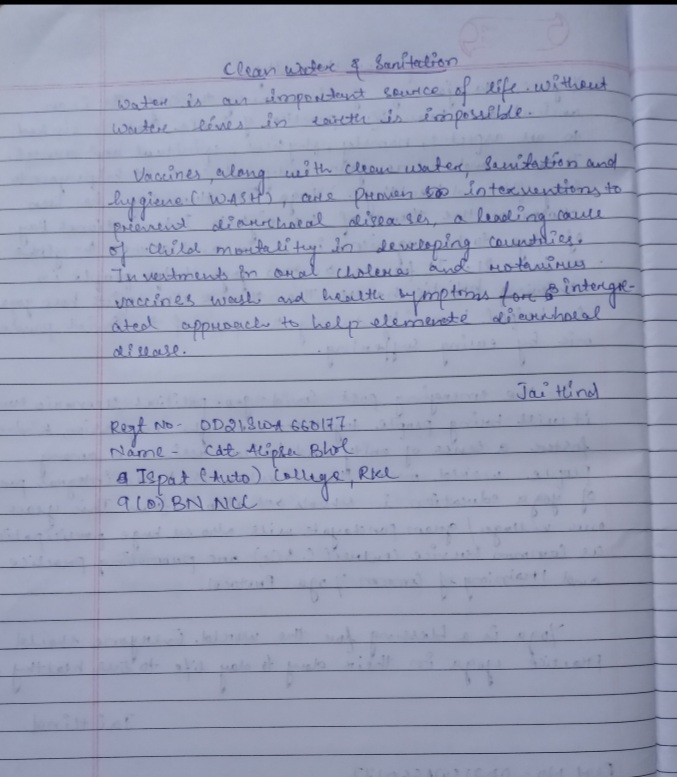 Clean Water & Sanitation
Water is an important source of life. Without
water lives in earth is impossible.
Vaccines, along with clean water, Sanitation and
hygiene (WASH), are proven interventions to
prevent diarrhoeal diseases, a leading cause
of child mortality in developing countries.
Investments in oral cholera and rotavirus
vaccines wash and health symptoms for intergr-
ated approach to help elemenate diarrhoeal
disease.
Jai Hind
Regt No- OD21SWA 660177
Name - Cdt Bhol
Ispat (Auto) College, RKL
9 (O) BN NCC